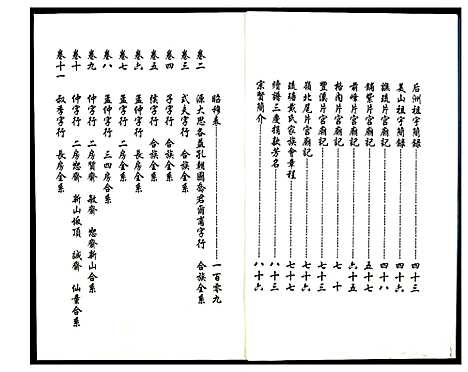 后洲祖宇簡錄 四十三
美山祖宇簡錄 四十六
詵琉片宮廟記 四十八
鋪紫片宮廟記 五十七
前峰片宮廟記 六十五
格內片宮廟記 七十
豐溪片宮廟記 七十三
嶺北尾片宮廟記 七十六
琉磚戴氏家族會章程 七十七
續譜三慶捐款芳名 八十四
宗賢簡介 八十六
昭穆卷 一百零九
卷二 源大思各益孔朝國喬君爾菁字行 合族全系
卷三 式夫字行 合族全系
卷四 子字行 合族全系
卷五 侯字行 合族全系
卷六 孟仲字行 長房全系
卷七 孟仲字行 二房全系
卷八 孟仲字行 三四房合系
卷九 仲字行 二房賢齋 敏齋 恕齋新山合系
卷十 仲字行 二房恕齋 新山坂頂 誠齋 仙童合系
卷十一 叔季字行 長房全系